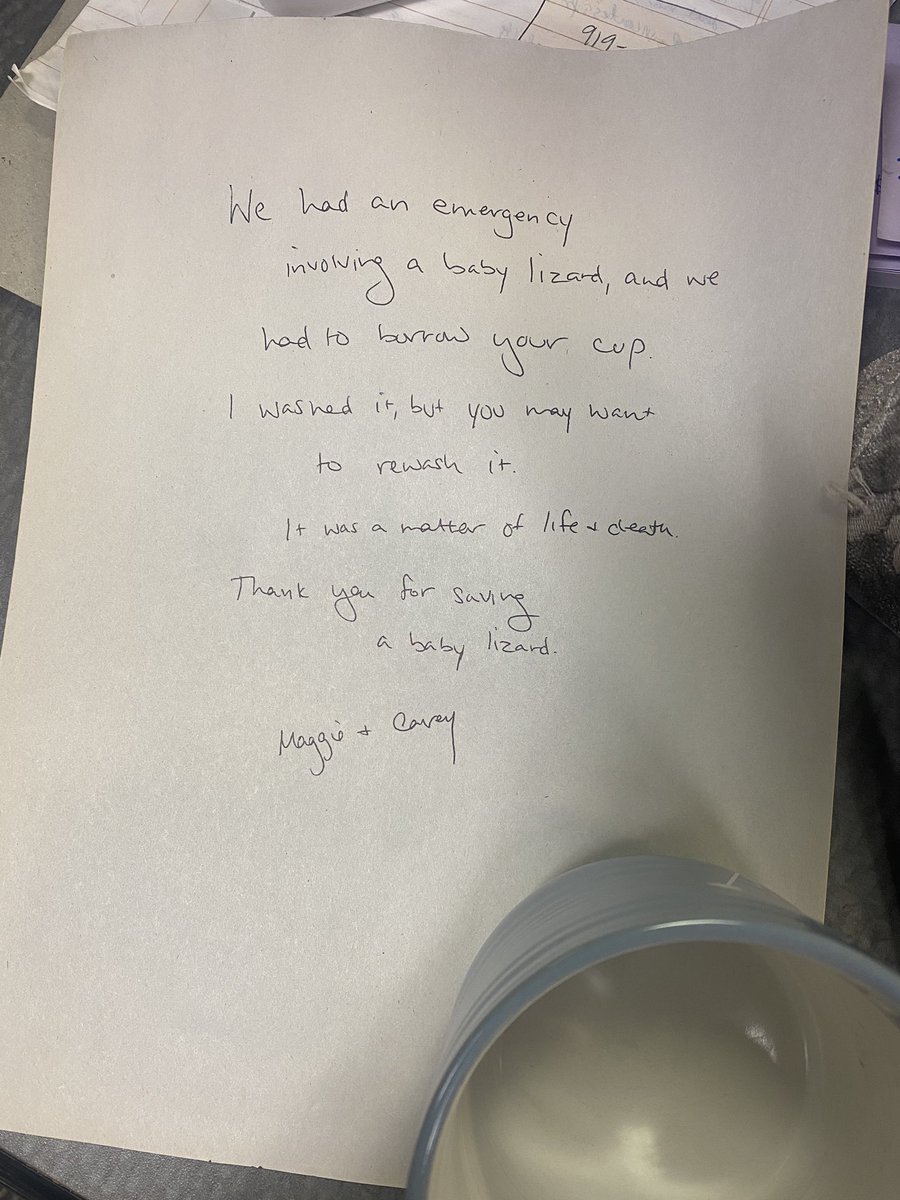 919-
We had an emergency
involving a baby lizard, and we
had to burrow your cup.
I washed it, but you may want
to rewash it.
It was a matter of life + death.
Thank you for saving
a baby lizard.
Maggie + Carey